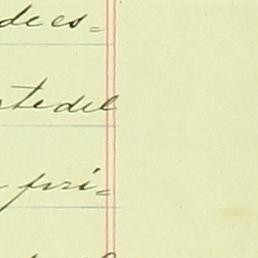 de es=
te del
pri=